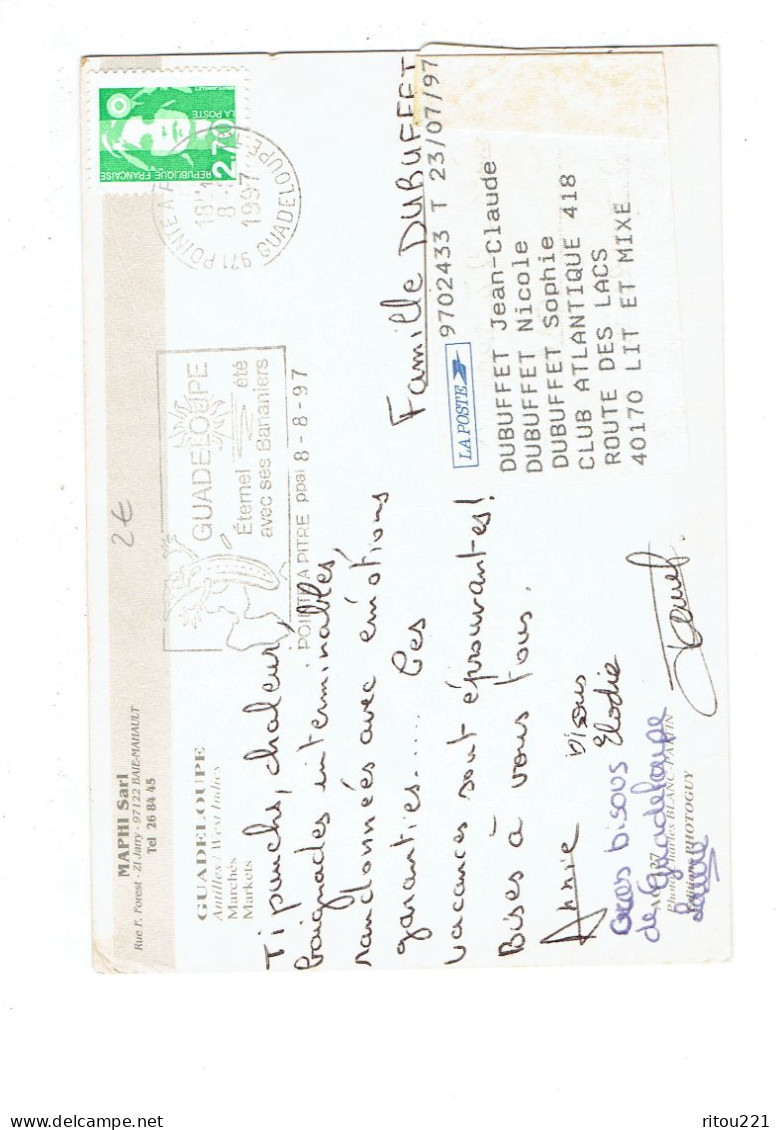 MAPHI Sarl
Rue F. Forest - ZI Jarry - 97122 BAIE-MAHAULT
Tel 26 84 45
GUADELOUPE
Antilles / West Indies
Marchés
Markets
2€
LA POSTE
2,70
REPUBLIQUE FRANÇAISE
971 POINTE A P
18H
8-
1997
GUADELOUPE
GUADELOUPE
Éternel été
avec ses Bananiers
POINTE A PITRE ppal 8-8-97
Ti punchs, chaleur,
baignades interminables,
randonnées avec émotions
garanties..... Ces
vacances sont éprouvantes!
Bises à vous tous.
Annie
bisous
Elodie
Gros bisous
de Guadeloupe
Famille DUBUFFET
9702433 T 23/07/97
LA POSTE
DUBUFFET Jean-Claude
DUBUFFET Nicole
DUBUFFET Sophie
CLUB ATLANTIQUE 418
ROUTE DES LACS
40170 LIT ET MIXE
Photo Charles BLANC-PATTIN
PHOTOGUY
ritou221